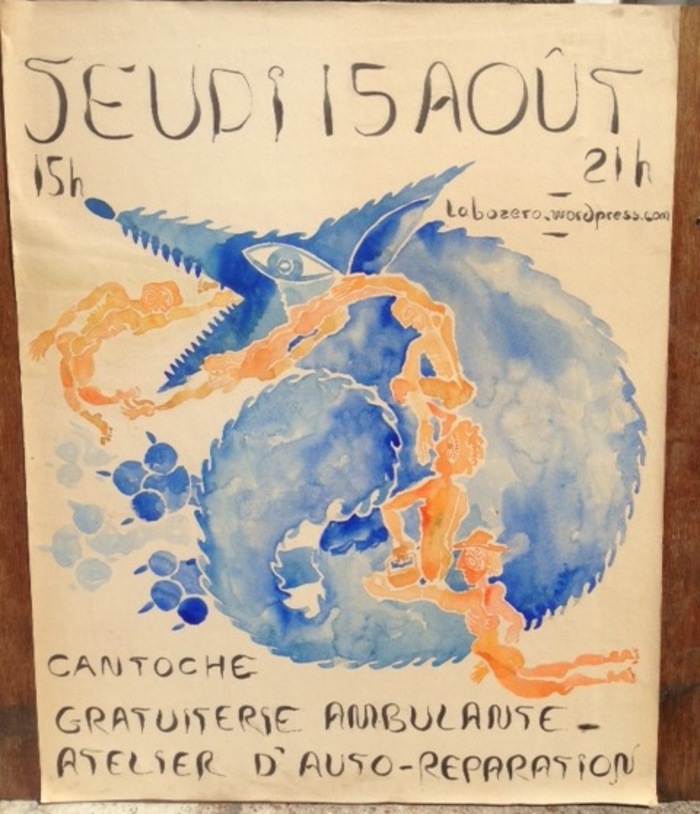 JEUDI 15 AOÛT
15h 21h
Labozero.wordpress.com
CANTOCHE
GRATUITERIE AMBULANTE -
ATELIER D'AUTO-REPARATION